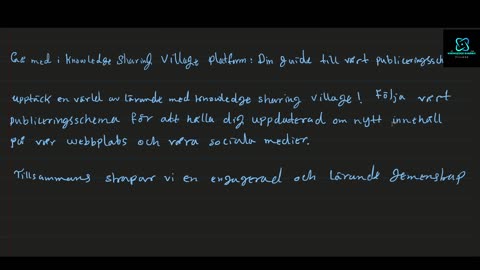 Gå med i Knowledge sharing Village platform: Din guide till vårt publiceringssche
upptäck en värld av lärande med knowledge sharing village! Följa vårt
publiceringsschema för att hålla dig uppdaterad om nytt innehåll
på vår webbplabs och våra sociala medier.
Tillsammans skapar vi en engagerad och lärande gemenskap